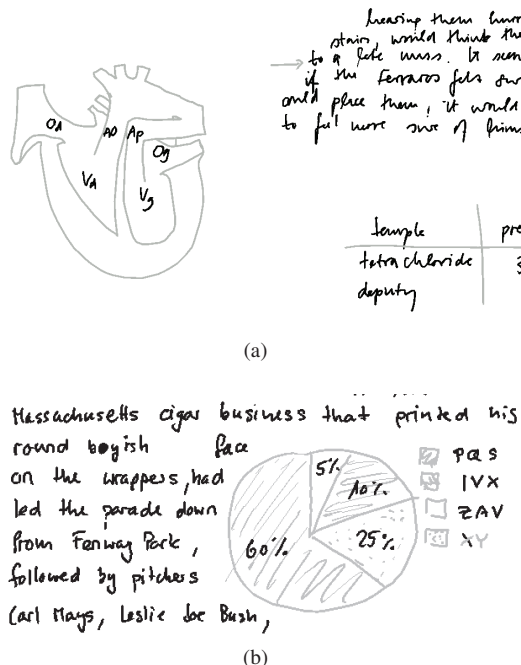 hearing them hurr
stairs, would think the
to a late mass. It seem
if the Ferraros felt sur
could place them, it would
to feel more sure of hims
Od AO Ap Og
Vd Vg
temple pre
tetrachloride 3
deputy
(a)
Massachusetts cigar business that printed his
round boyish face
on the wrappers, had
led the parade down
from Fenway Park,
followed by pitchers
Carl Mays, Leslie Joe Bush,
5%
10%
25%
60%
PQS
IVX
ZAV
XY
(b)